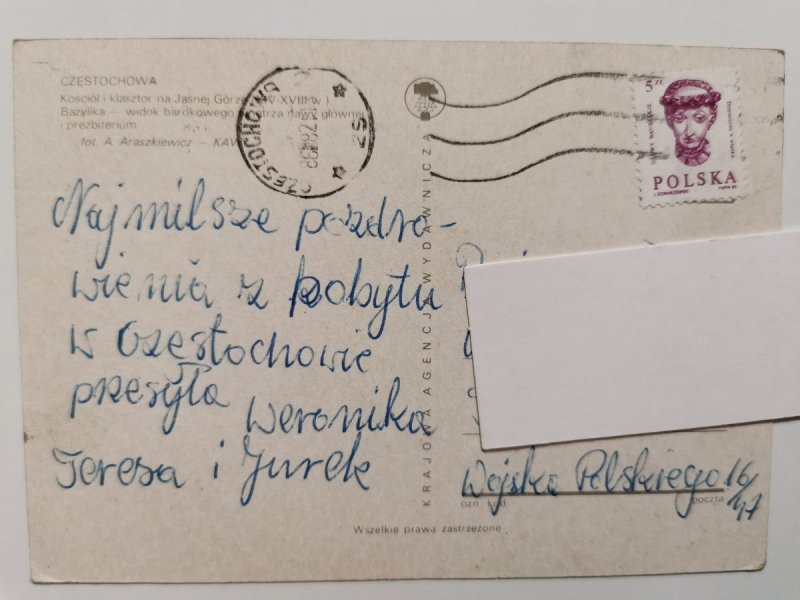 CZĘSTOCHOWA
Kościół i klasztor na Jasnej Górze XVIII w.)
Bazylika — widok barokowego nawy głównej
i prezbiterium
fot. A. Araszkiewicz — KAW
CZĘSTOCHOWA
5
POLSKA
Najmilsze pozdro-
wienia z pobytu
w Częstochowie
przesyła Weronika
Teresa i Jurek
KRAJOWA AGENCJA WYDAWNICZA
Wojska Polskiego 16/
47
ozn. kod. poczta
Wszelkie prawa zastrzeżone